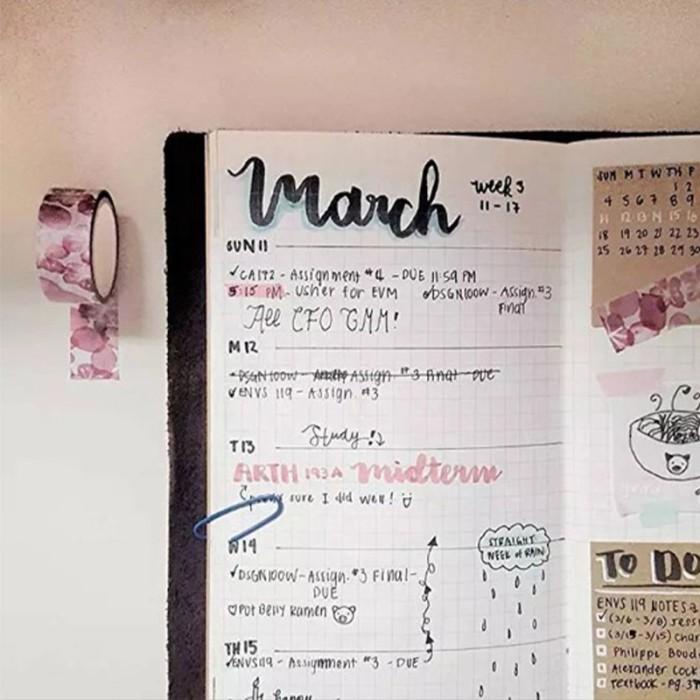 March
week 3
11-17
SUN 11
✓CA172 - Assignment #4 - DUE 11:59 PM
5:15 PM - Usher for EVM ✓DSGN100W - Assign. #3
Final
All CFO GMM!
M12
DSGN100W - Assign #3 Final - DUE
✓ENVS 119 - Assign. #3
Study!
T13
ARTH 193A midterm
sure I did well!
W14
✓DSGN100W - Assign. #3 Final -
DUE
♡Pot Belly Ramen
STRAIGHT
WEEK of RAIN
TH15
✓ENVS119 - Assignment #3 - DUE
happy
SUN M T W TH F
1 2
4 5 6 7 8 9
11 12 13 14 15 16
18 19 20 21 22 23
25 26 27 28 29 30
TO DO
ENVS 119 NOTES
✓(3/6 - 3/8)
(3/13 - 3/15)
Philippe
Alexander
Textbook - pg.